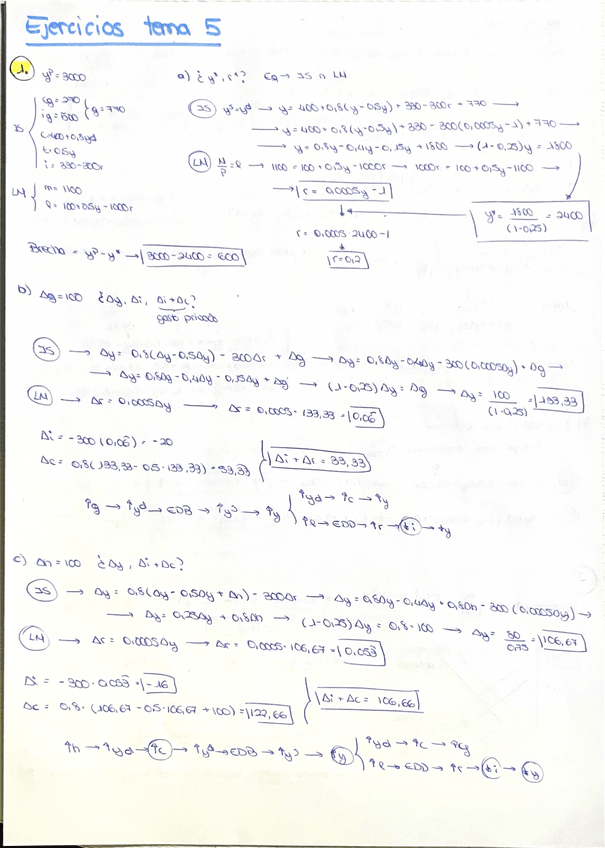 Ejercicios tema 5
1. yᵖ = 3000
a) ¿ y*, r*? Eq → IS ∩ LM
IS { cg = 270
ig = 500 } g = 770
c = 400 + 0,8yd
t = 0,5y
i = 330 - 300r
LM { m = 1100
l = 100 + 0,5y - 1000r
IS yˢ = yᵈ → y = 400 + 0,8(y - 0,5y) + 330 - 300r + 770 →
→ y = 400 + 0,8(y - 0,5y) + 330 - 300(0,0005y - 1) + 770 →
→ y = 0,8y - 0,4y - 0,15y + 1800 → (1 - 0,25)y = 1800
LM M/P = l → 1100 = 100 + 0,5y - 1000r → 1000r = 100 + 0,5y - 1100 →
→ r = 0,0005y - 1
y* = 1800/(1-0,25) = 2400
r = 0,0005 · 2400 - 1
r = 0,2
Brecha = yᵖ - y* → 3000 - 2400 = 600
b) Δg = 100 ¿Δy, Δi, Δi + Δc?
gasto privado
IS → Δy = 0,8(Δy - 0,5Δy) - 300Δr + Δg → Δy = 0,8Δy - 0,4Δy - 300(0,0005Δy) + Δg →
→ Δy = 0,8Δy - 0,4Δy - 0,15Δy + Δg → (1 - 0,25)Δy = Δg → Δy = 100/(1-0,25) = 133,33
LM → Δr = 0,0005Δy → Δr = 0,0005 · 133,33 = 0,06
Δi = -300(0,06) = -20
Δc = 0,8(133,33 - 0,5 · 133,33) = 53,33
Δi + Δr = 33,33
↑g → ↑yᵈ → EDB → ↑yˢ → ↑y { ↑yd → ↑c → ↑y
↑l → EDD → ↑r → ↓i → ↓y
c) Δh = 100 ¿Δy, Δi + Δc?
IS → Δy = 0,8(Δy - 0,50y + Δh) - 300Δr → Δy = 0,8Δy - 0,4Δy + 0,8Δh - 300(0,0005Δy) →
→ Δy = 0,25Δy + 0,8Δh → (1 - 0,25)Δy = 0,8 · 100 → Δy = 80/0,75 = 106,67
LM → Δr = 0,0005Δy → Δr = 0,0005 · 106,67 = 0,053
Δi = -300 · 0,053 = -16
Δc = 0,8 · (106,67 - 0,5 · 106,67 + 100) = 122,66
Δi + Δc = 106,66
↑h → ↑yd → ↑c → ↑yᵈ → EDB → ↑yˢ → ↑y { ↑yd → ↑c →
↑l → EDD → ↑r → ↓i → ↓y